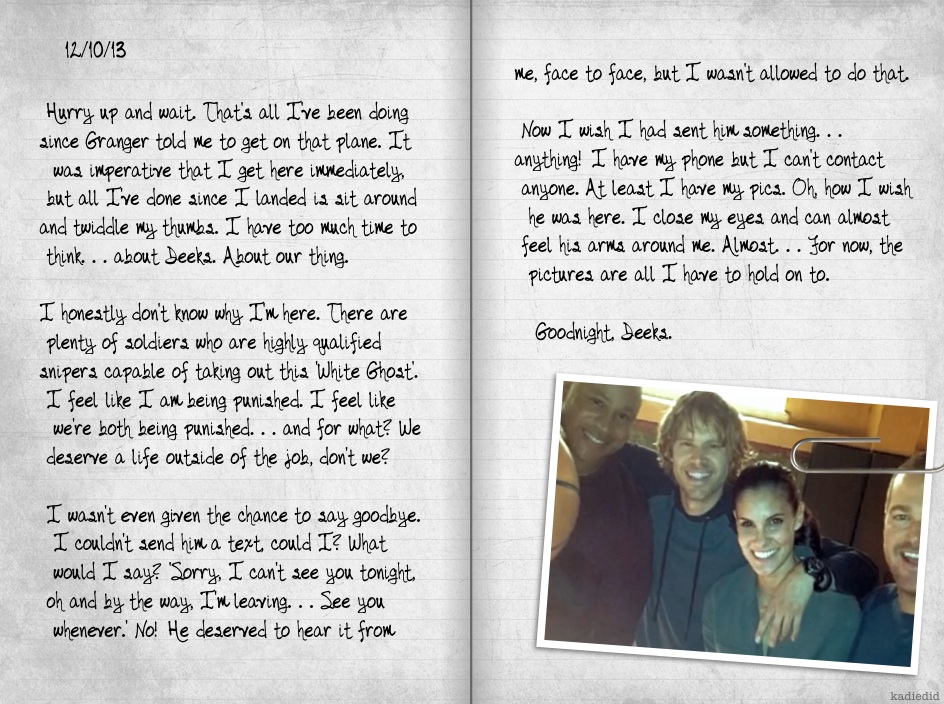 12/10/13
Hurry up and wait. That's all I've been doing
since Granger told me to get on that plane. It
was imperative that I get here immediately,
but all I've done since I landed is sit around
and twiddle my thumbs. I have too much time to
think. . . about Deeks. About our thing.
I honestly don't know why I'm here. There are
plenty of soldiers who are highly qualified
snipers capable of taking out this 'White Ghost'.
I feel like I am being punished. I feel like
we're both being punished. . . and for what? We
deserve a life outside of the job, don't we?
I wasn't even given the chance to say goodbye.
I couldn't send him a text, could I? What
would I say? 'Sorry, I can't see you tonight,
oh and by the way, I'm leaving. . . See you
whenever.' No! He deserved to hear it from
me, face to face, but I wasn't allowed to do that.
Now I wish I had sent him something. . .
anything! I have my phone but I can't contact
anyone. At least I have my pics. Oh, how I wish
he was here. I close my eyes and can almost
feel his arms around me. Almost. . . For now, the
pictures are all I have to hold on to.
Goodnight, Deeks.
kadiedid